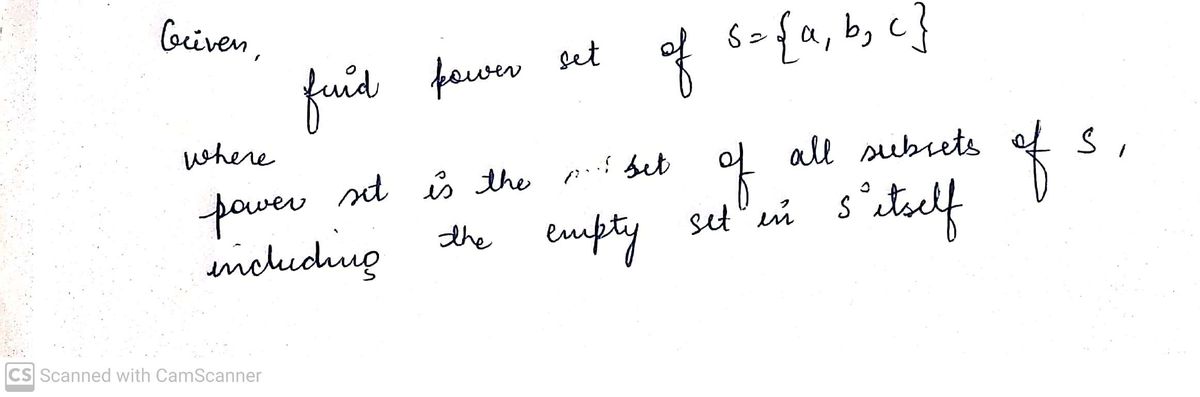 Given,
find power set of S = {a, b, c}
where
power set is the set of all subsets of S,
including the empty set in S itself
CS Scanned with CamScanner